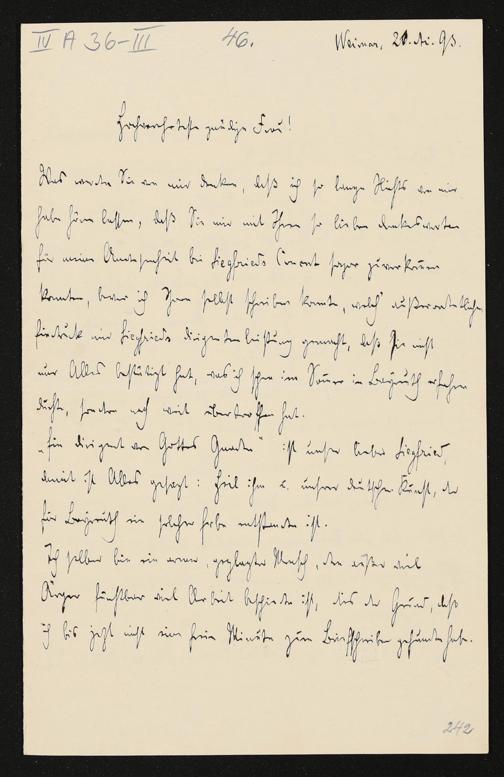 IV A 36-III
46.
Weimar, 28. Xi. 93.
Hochverehrteste gnädige Frau!
Was werden Sie von mir denken, daß ich so lange Nichts von mir
habe hören lassen, daß Sie mir mit Ihren so lieben Dankesworten
für meine Anwesenheit bei Siegfrieds Concert sogar zuvorkommen
konnten, bevor ich Ihnen selbst schreiben konnte, welch' außerordentlichen
Eindruck mir Siegfrieds Dirigentenleistung gemacht, daß sie nicht
nur Alles bestätigt hat, was ich schon im Sommer in Bayreuth erfahren
durfte, sondern noch weit übertroffen hat.
„Ein Dirigent von Gottes Gnaden“ ist unser lieber Siegfried,
damit ist Alles gesagt: Heil ihm u. unserer deutschen Kunst, der
für Bayreuth ein solcher Erbe entstanden ist.
Ich selber bin ein armer, geplagter Mensch, dem außer viel
Ärger furchtbar viel Arbeit beschieden ist, dies der Grund, daß
ich bis jetzt nicht eine freie Minute zum Briefschreiben gefunden habe.
242